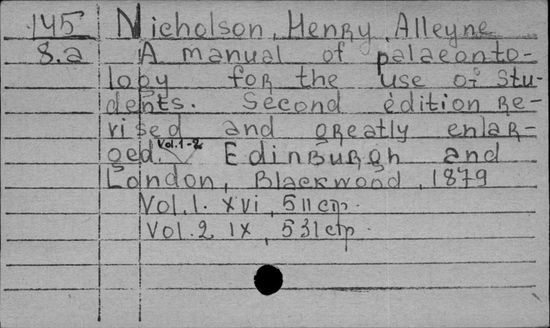 145 Nicholson, Henry Alleyne
8.a A manual of palaeonto-
logy for the use of Stu-
dents. Second edition Re-
vised and greatly enlar-
ged. Vol.1-2 Edinburgh and
London, Blackwood, 1879
Vol.1. XVI, 511 стр.
Vol.2 IX, 531 стр.